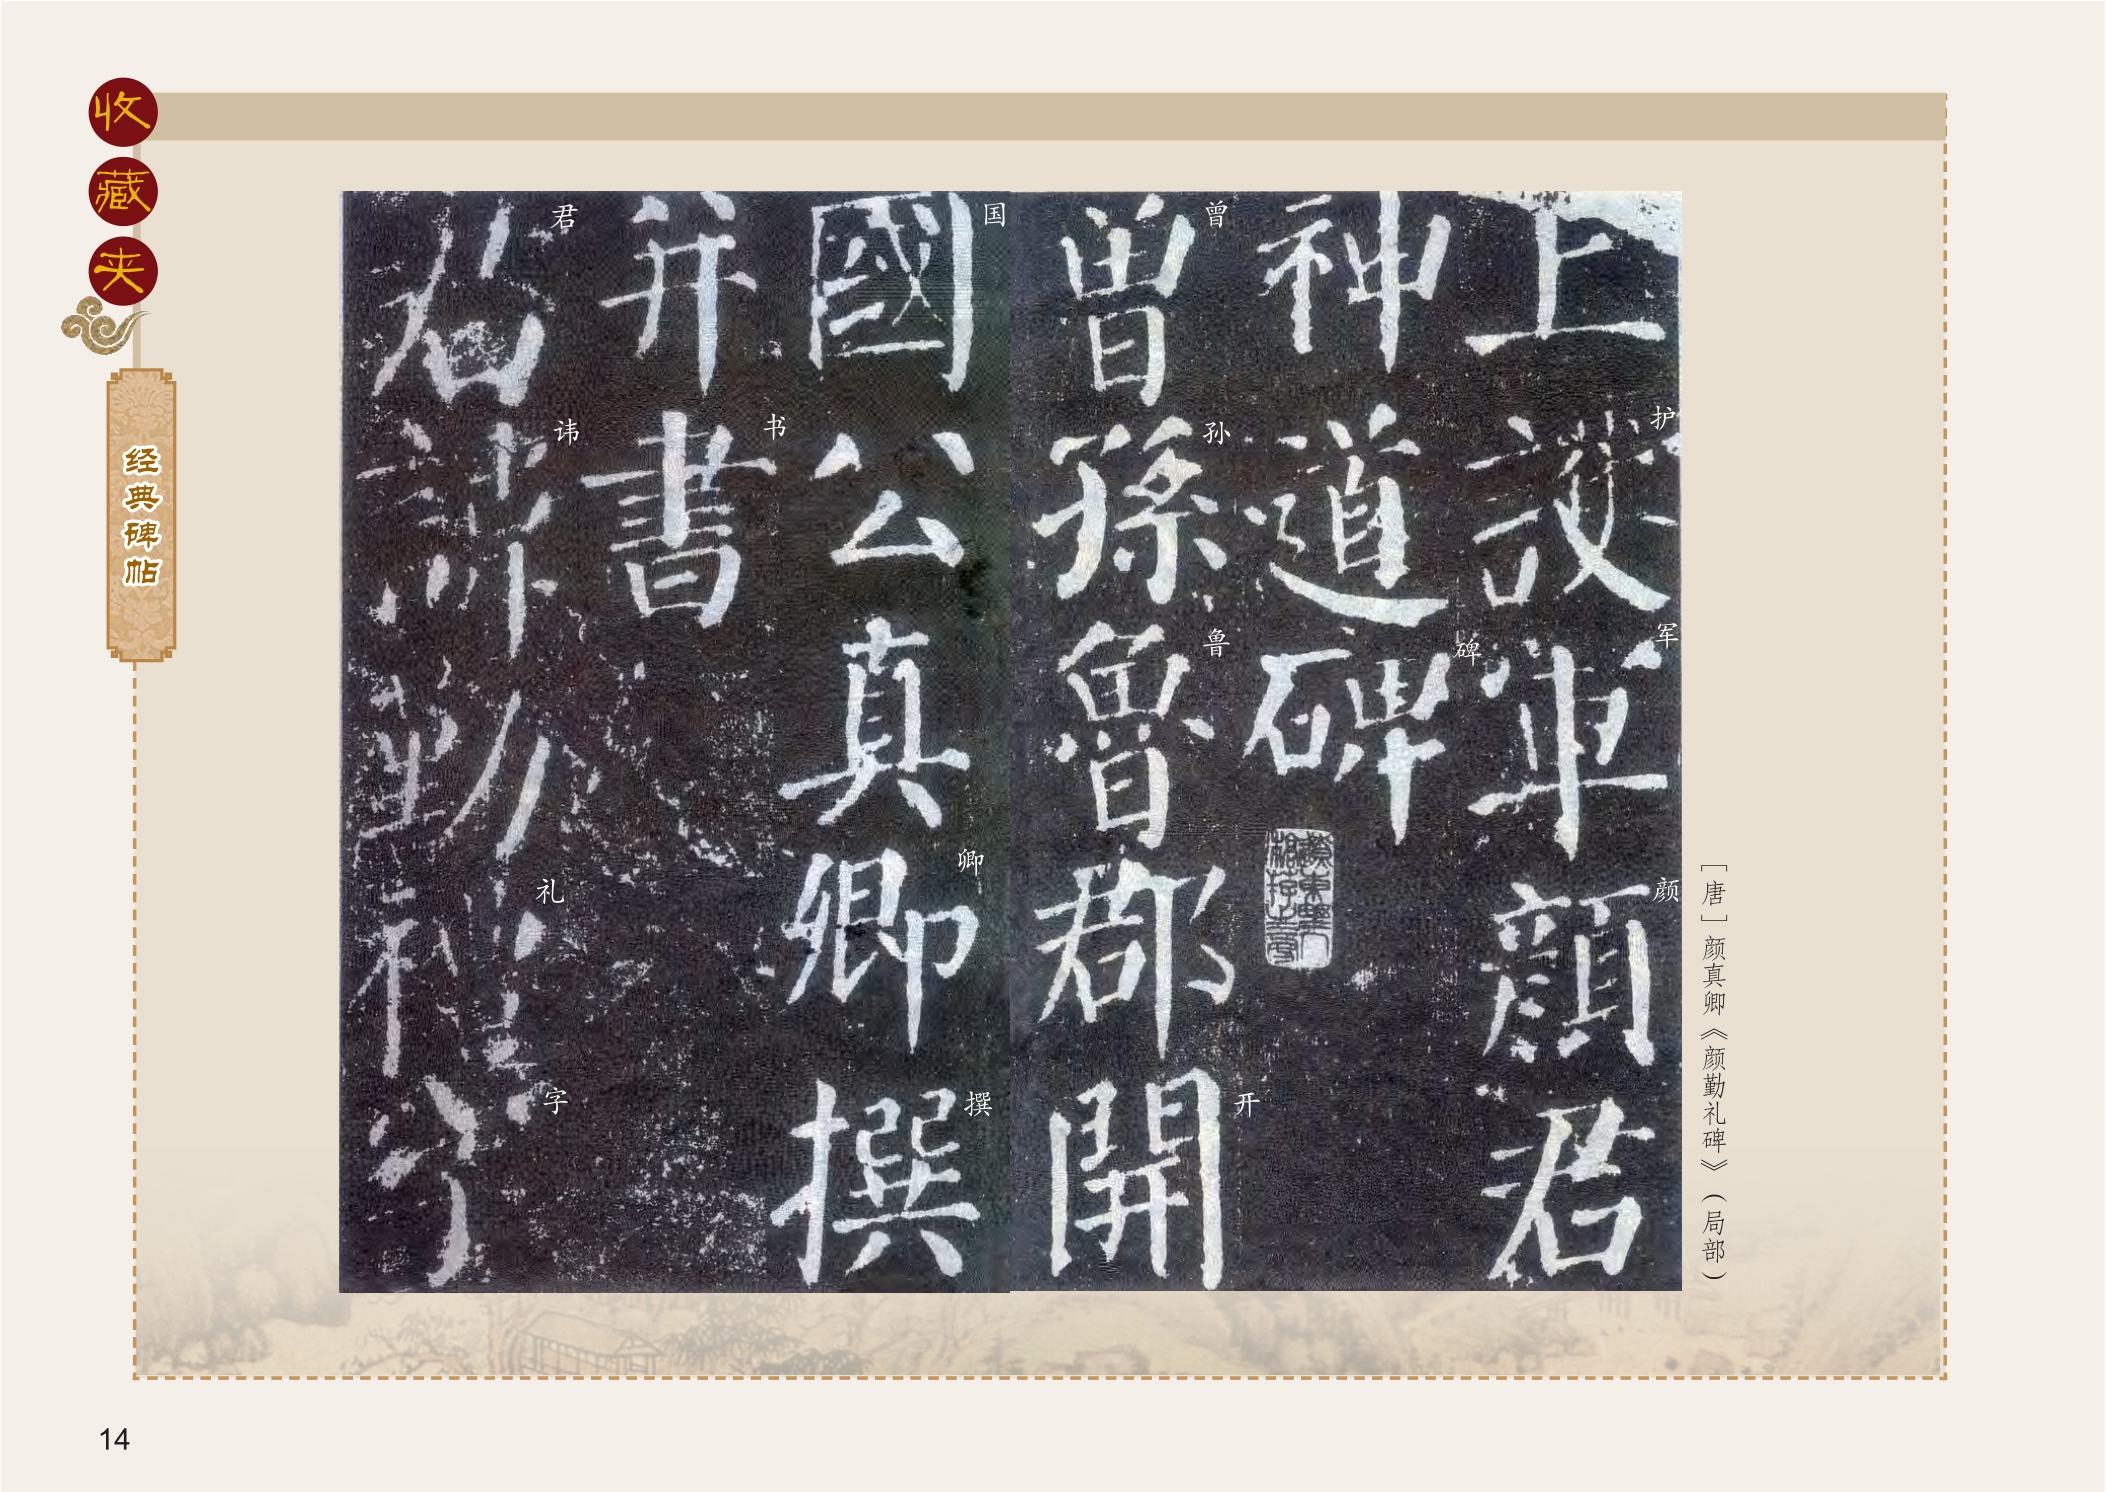 收藏夹
经典碑帖
上護軍顔君
护
军
颜
神道碑
碑
曾孫魯郡開
曾
孙
鲁
开
國公真卿撰
国
卿
撰
并書
书
君諱勤禮字
君
讳
礼
字
［唐］颜真卿《颜勤礼碑》（局部）
14